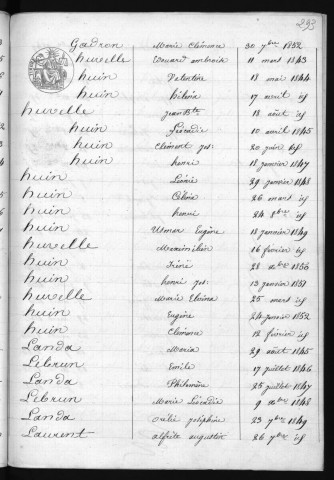 293
Gadron Marie Clémence 30 7bre 1852
huvelle Edouard ambroise 11 mars 1843
huin Palentine 18 mai 1844
huin 17 avril id
huvelle Jean Bte 18 août id
huin Léocadie 10 avril 1845
huin Clément jph 20 juin id
huin henri 18 janvier 1847
huin Léonie 29 janvier 1848
huin Céline 26 mars id
huin henri 24 9bre id
huin Usmar Eugène 18 janvier 1849
huvelle Maximilien 16 février id
huin Irénée 28 Xbre 1850
huin henri jph 13 janvier 1851
huvelle Marie 25 mars id
huin Eugène 24 janvier 1852
huin Clémence 12 février id
Landa Maria 29 août 1845
Lebrun Emile 17 juillet 1846
Landa Philomène 25 juillet 1847
Lebrun Marie Léocadie 9 Xbre 1848
Landa joséphine 23 7bre 1849
Laurent alfrède augustin 26 7bre id